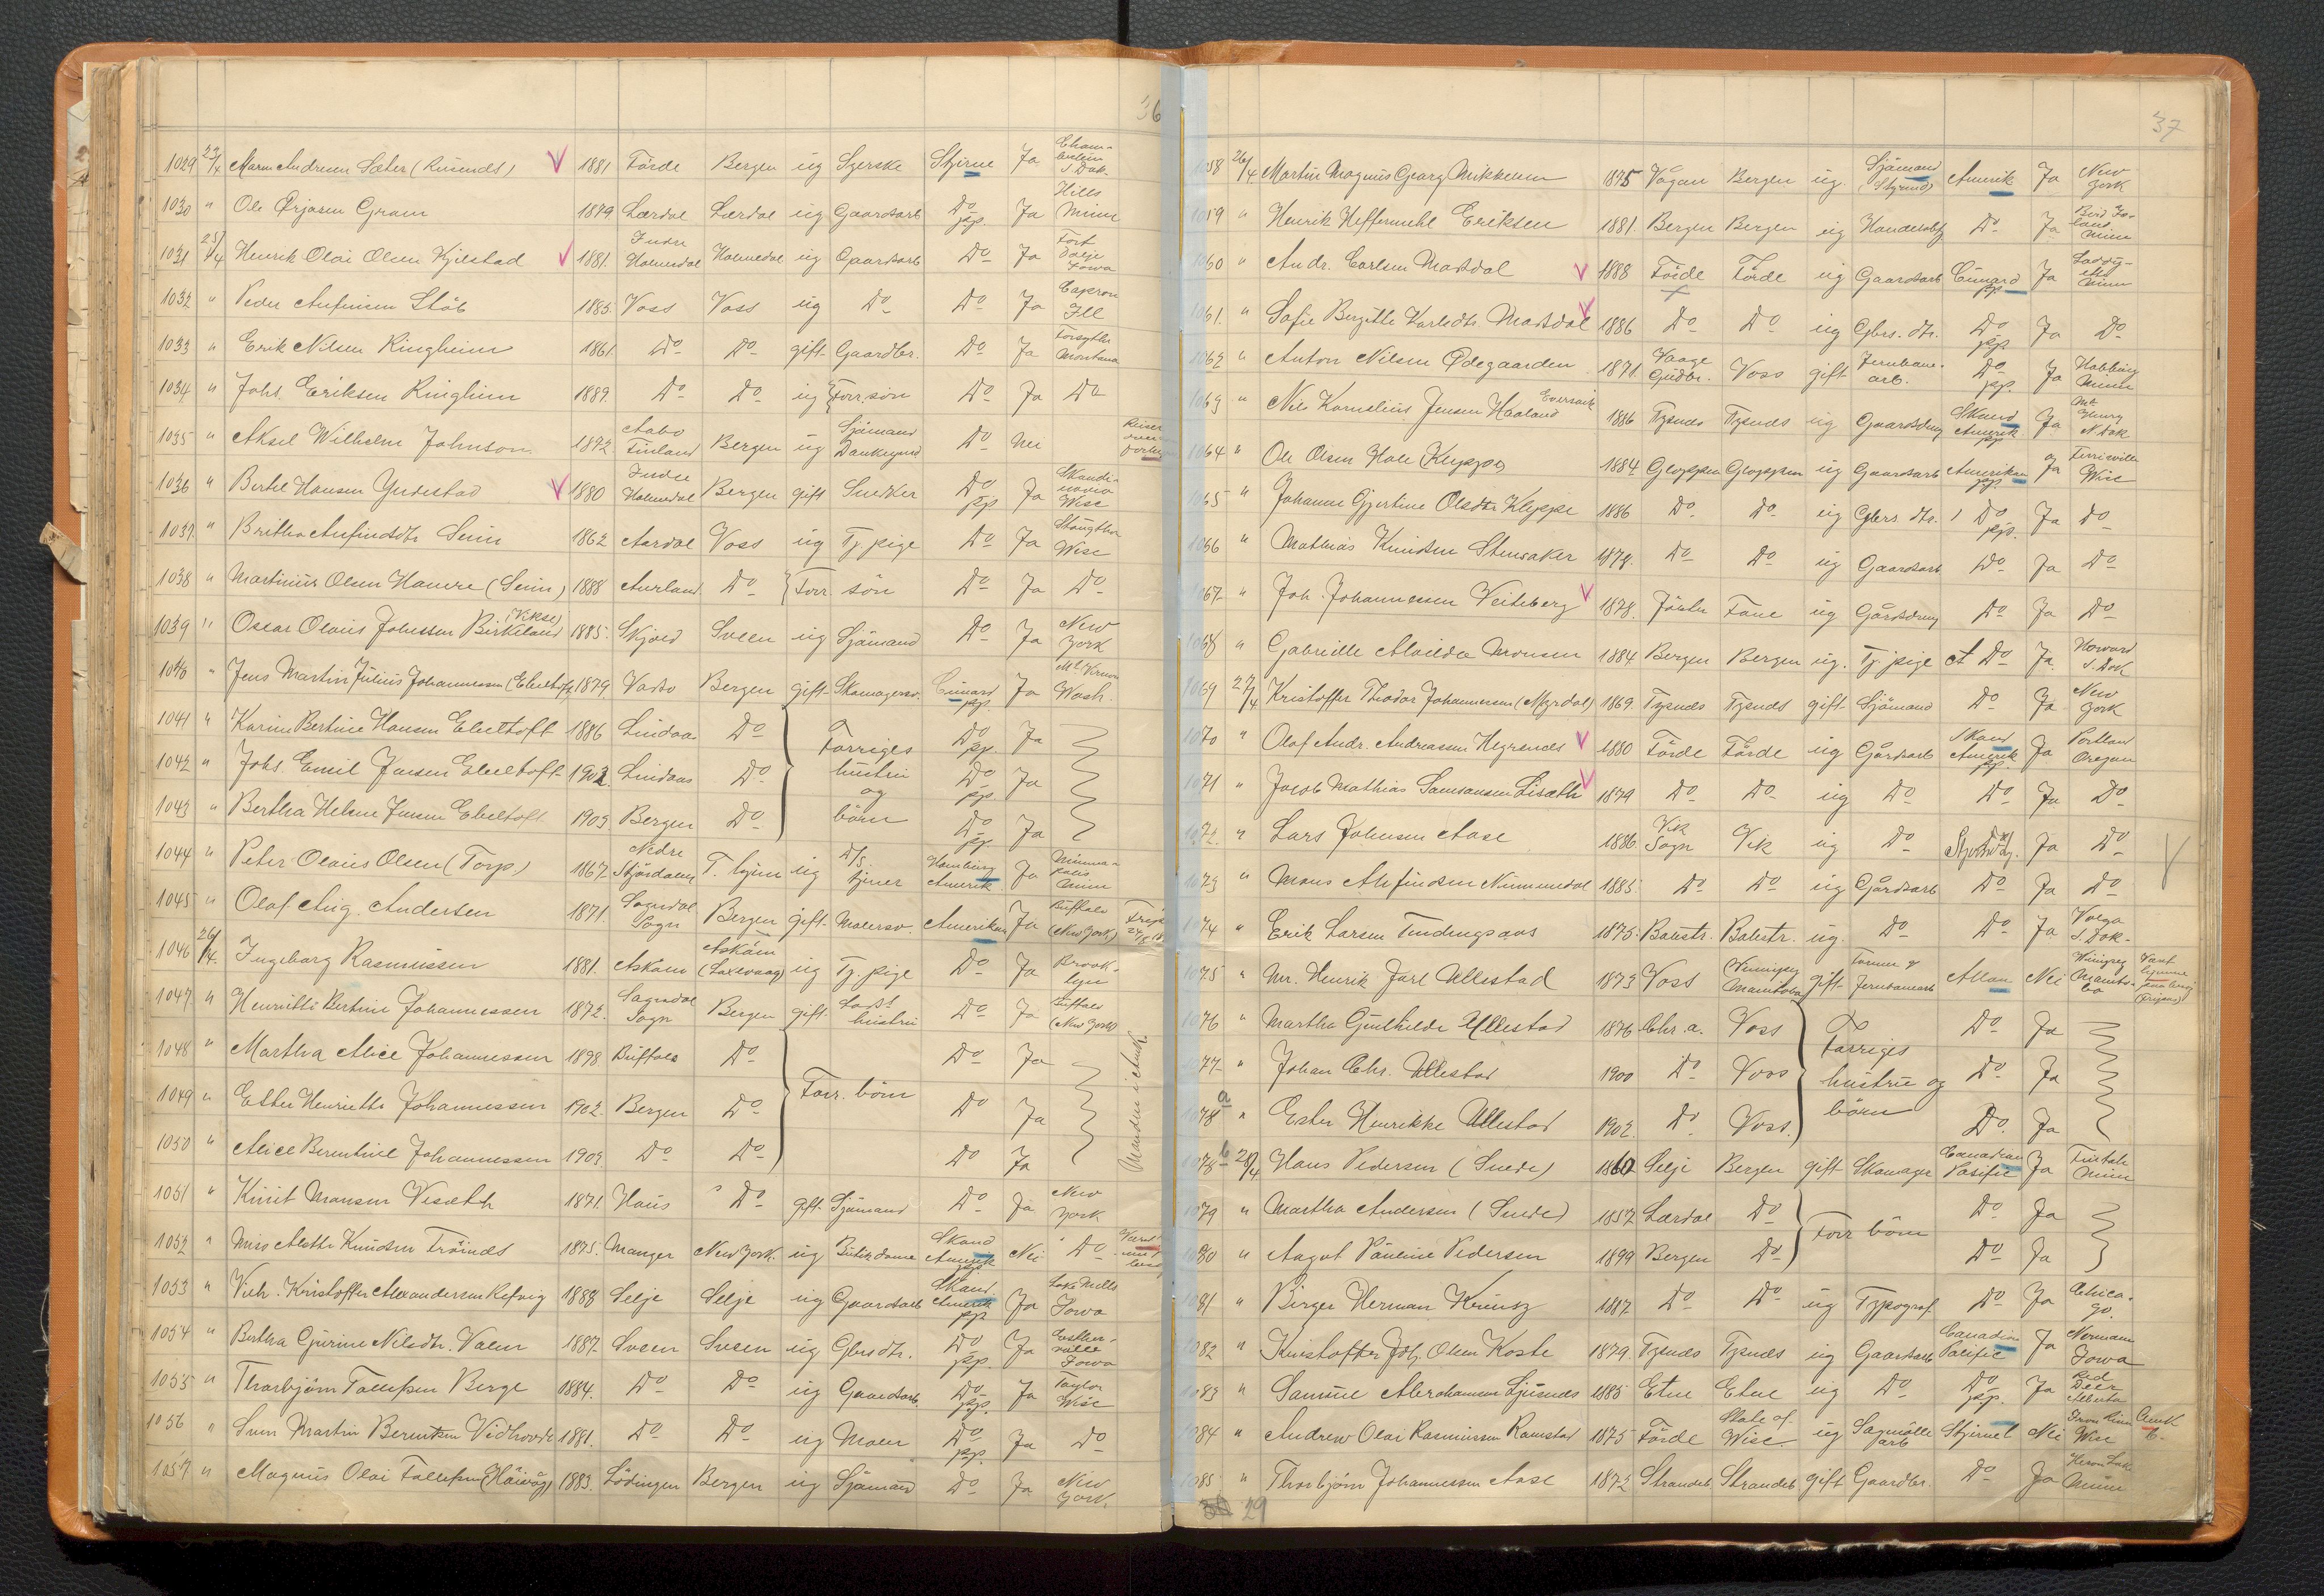 36
1029 23/4 Maren Andresen Sæter (Kusends) V 1881 Förde Bergen ug Syerske Stjerne Ja Cham-berlein S. Dak.
1030 " Ole Ørjasen Gram 1879 Lærdal Lærdal ug Gaardsarb Do pp. Ja Hills Minn
1031 25/4 Henrik Olai Olsen Kjelstad V 1881. Indre Holmedal Holmedal ug Gaardsarb Do Ja Fort Dodge Iowa
1032 " Peder Anfinsen Støb 1885. Voss Voss ug Do Do Ja Capron Ill
1033 " Erik Nilsen Ringheim 1861 Do Do gift Gaardbr. Do Ja Forsythe Montana
1034 " Johs. Eriksen Ringheim 1889. Do Do ug Forr. sön Do Ja Do
1035 " Aksel Wilhelm Johnson 1872 Aabo Finland Bergen ug Sjömand Do Nei
1036 " Bertel Hansen Yndestad V 1880 Indre Holmedal Bergen gift Snedker Do pp Ja Skandi-navia Wisc
1037. " Britha Anfindsdtr Seim 1862 Aardal Voss ug Tj. pige Do Ja Stoughton Wisc
1038 " Martinius Olsen Hauvre (Seim) 1888 Aurland Do Forr. sön Do Ja Do
1039 " Oscar Olaus Johnsen Birkeland (Vikse) 1885. Skjold Sveen ug Sjömand Do Ja New York
1040 " Jens Martin Julius Johannessen (Ebeltoft) 1879 Vadsö Bergen gift Skomagersv. Cunard pp. Ja Mt. Vernon Wash.
1041 " Karine Bertine Hansen Ebeltoft 1886 Lindaas Do Forriges hustru og börn Do pp. Ja
1042 " Johs. Emil Jensen Ebeltoft 1902. Lindaas Do Do pp. Ja
1043 " Bertha Helene Jensen Ebeltoft 1903 Bergen Do Do pp. Ja
1044 " Peter Olaus Olsen (Torp) 1867 Nedre Stjördalen T. hjem ug D/S. tjener Hamburg Amerik. Ja Minnea-polis Minn
1045 " Olaf Aug. Andersen 1871. Sogndal Sogn Bergen gift Malersv. Amerikan Ja Buffalo (New York)
1046 26/4. Ingeborg Rasmussen 1881. Askøen Askøen (Laxevaag) ug Tj. pige Do Ja Brook-lyn
1047 " Henriette Bertine Johannessen 1872. Sogndal Sogn Bergen gift hustru Do Ja Buffalo (New York)
1048 " Martha Alice Johannessen 1898 Buffalo Do Forr. börn Do Ja
1049 " Esther Henriette Johannessen 1902. Bergen Do Do Ja
1050 " Alice Berentine Johannessen 1903. Do Do Do Ja
Manden i Amk.
1051 " Knut Monsen Visæth 1871. Haus Do gift Sjömand Do Ja New York
1052 " Miss Alethe Knudsen Fröinds 1875. Manger New York. ug Butikdame Skand Amerik pp. Nei Do
1053 " Vilh. Kristoffer Alexandersen Refvig 1888 Selje Selje ug Gaardsarb Skand. Amerik pp Ja Lake Mills Iowa
1054 " Bertha Gurine Nilsdtr. Valen 1887. Sveen Sveen ug Gbrsdtr. Do pp. Ja Esther-ville Iowa
1055 " Thorbjörn Tollefsen Berge 1884. Do Do ug Gaardsarb. Do pp. Ja Taylor Wisc
1056 " Sven Martin Berentsen Vidhovde 1881. Do Do ug Maler Do pp. Ja Do
1057 " Magnus Olai Tollefsen (Haivåg) 1883. Lödingen Bergen ug Sjömand Do Ja New York.
37
1058 26/4 Martin Magnus Georg Mikkelsen 1875 Vågan Bergen ug. Sjömand (Styrmd) Amerik Ja New York
1059 " Henrik Heffermehl Eriksen 1881. Bergen Bergen ug Handelsbetj Do Ja Bird Is-land Minn
1060 " Andr. Carlsen Mardal V 1888 Förde Förde ug Gaardsarb Cunard pp. Ja Minn
1061. " Sofie Bergitte Karlsdtr. Mardal V 1886 Do Do ug Gbrs. dtr. Do pp. Ja Do
1062 " Anton Nilsen Ødegaarden 1871. Vaage Gudbr. Voss gift Jernbane-arb. Do pp. Ja Minn
1063 " Nils Kornelius Jensen Haaland Eversvik 1886 Tysnes Tysnes ug Gaardsdreng Skand Amerik pp Ja N Dak
1064 " Ole Olsen Hole Kleppe 1884 Gloppen Gloppen ug Gaardsarb Amerikan pp. Ja Ferrisville Wisc
1065 " Johanne Gjertine Olsdtr Kleppe 1886 Do Do ug Gbrs. dtr. Do pp. Ja Do
1066 " Mathias Knudsen Stensaker 1878. Do Do ug Gaardsarb. Do Ja Do
1067 " Joh. Johannessen Veiteberg V 1878. Jölster Fane ug Gårdsdreng Do Ja Do
1068 " Gabrielle Alvilde Monsen 1884 Bergen Bergen ug. Tj. pige Do Ja Howard S. Dak
1069 27/4 Kristoffer Theodor Johannessen (Myrdal) 1869. Tysnes Tysnes gift Sjömand Do Ja New York
1070 " Olaf Andr. Andreassen Hegrenes V 1880 Förde Förde ug Gårdsarb Skand Amerik pp. Ja Portland Oregon
1071 " Jacob Mathias Samsonsen Liseth V 1879 Do Do ug Do Do Ja Do
1072. " Lars Johnsen Aase 1886. Vik Sogn Vik ug Do Ja Do
1073 " Mons Anfindsen Nummedal 1885. Do Do ug Gårdsarb Do Ja Do
1074 " Erik Larsen Tundingsaas 1875. Balestr. Balestr. ug. Do Do Ja Volga S. Dak.
1075 " Mr. Henrik Jarl Ullestad 1873 Voss Winnipeg Manitoba gift Farmer & Jernbanearb Allan Nei Winnipeg Manito-ba
1076 " Martha Gunhilde Ullestad 1876. Chr. a. Voss Forriges hustru og börn Do Ja
1077 " Johan Chr. Ullestad 1900 Do Voss Do Ja
1078a " Ester Henrikke Ullestad 1902. Do Voss. Do Ja
1078b 28/4 Hans Pedersen (Snede) 1860 Selje Bergen gift Skomager Canadian Pacific Ja Minn
1079 " Martha Andersen (Snede) 1857. Lærdal Do Forr börn Do Ja
1080 " Aagot Pauline Pedersen 1899 Bergen Do Do Ja
1081 " Birger Herman Kreusz 1887. Do Do ug Typograf Do Ja Chica-go.
1082 " Kristoffer Joh. Olsen Koste 1879. Tysnes Tysnes ug Gaardsarb Canadian Pacific Ja Iowa
1083 " Samme Abrahamsen Ljusnes 1885 Etne Etne ug Do Do pp. Ja Red Deer Alberta
1084 " Andrew Olai Rasmussen Ramstad 1875 Förde State of Wisc. ug Sagmölle arb Stjernel Nei Iron River Wisc
1085 " Thorbjörn Johannessen Aase 1872 Strandeb Strandeb gift Gaardbr. Do Ja Heron Lake Minn
29